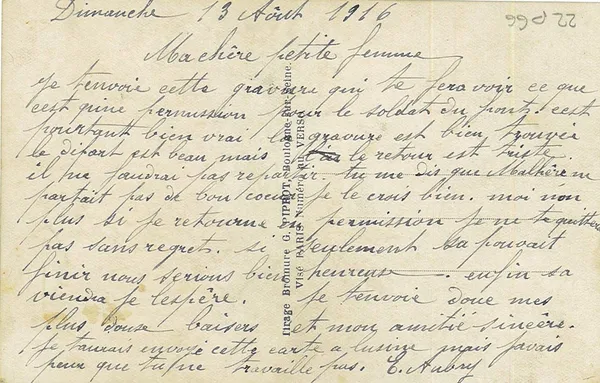 Dimanche 13 Août 1916
22 d 66
Ma chère petite femme
Je t'envoie cette gravure qui te fera voir ce que
c'est qu'une permission pour le soldat du front. c'est
pourtant bien vrai la gravure est bien trouvée
le départ est beau mais le retour est triste.
il ne faudrai pas repartir. tu me dis que Malhère ne
partait pas de bon coeur je le crois bien. moi non
plus si je retourne en permission je ne te quitterai
pas sans regret. si seulement sa pouvait
finir nous serions bien heureux. enfin sa
viendra je l'espère. Je t'envoie donc mes
plus doux baisers et mon amitié sincère.
Je t'aurais envoyé cette carte a l'usine mais j'avais
peur que tu ne travaille pas. E. Aubry
Tirage Bromure G. PIPROT, Boulogne-sur-Seine.
Visé PARIS Numéro au VERSO